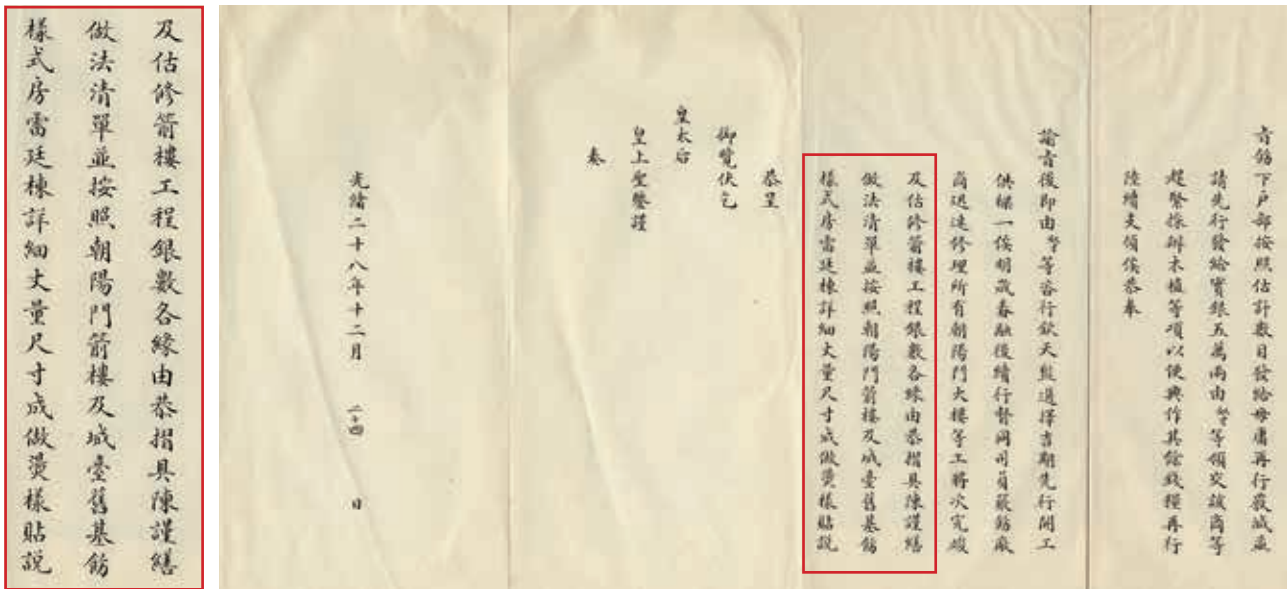 及估修箭樓工程銀數各緣由恭摺具陳謹繕
做法清單並按照朝陽門箭樓及城臺舊基飭
樣式房雷廷棟詳細丈量尺寸成做燙樣貼說
旨飭下戶部按照估計數目發給毋庸再行覈減並
請先行發給實銀五萬兩由等領交該商等
趕緊採辦木植等項以便興作其餘錢糧再行
陸續支領俟恭奉
諭旨後即由等咨行欽天監選擇吉期先行開工
供樑一俟明歲春融後續行督同司員嚴飭廠
商迅速修理所有朝陽門大樓等工將次完竣
及估修箭樓工程銀數各緣由恭摺具陳謹繕
做法清單並按照朝陽門箭樓及城臺舊基飭
樣式房雷廷棟詳細丈量尺寸成做燙樣貼說
恭呈
御覽伏乞
皇太后
皇上聖鑒謹
奏
光緒二十八年十二月 二十四 日